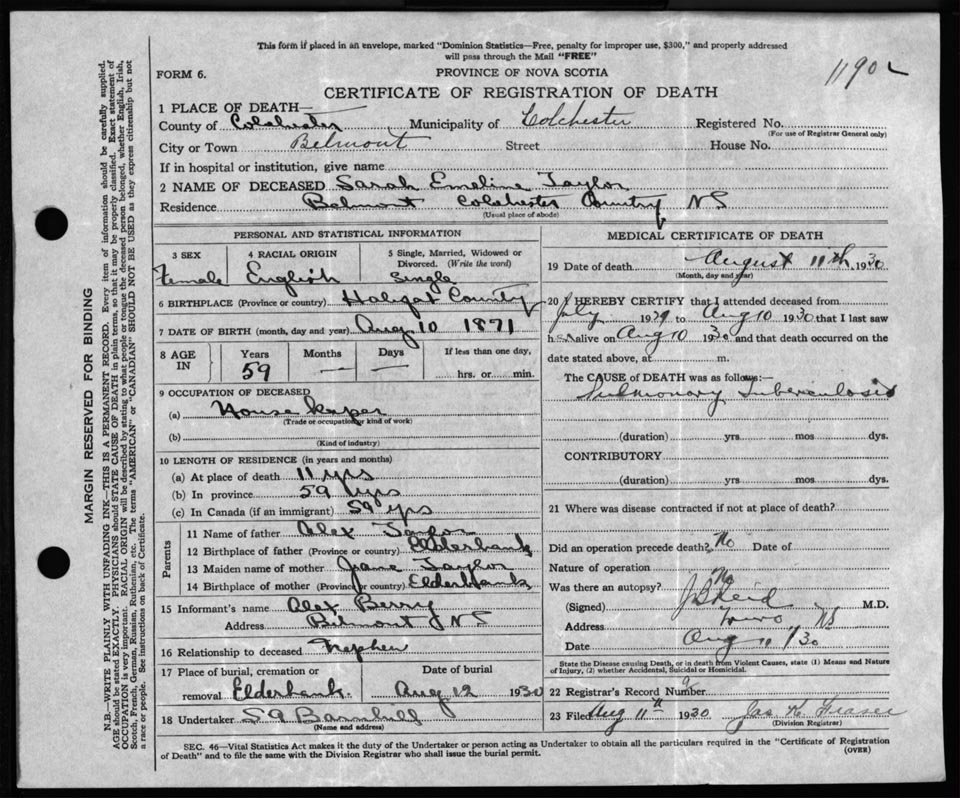 This form if placed in an envelope, marked "Dominion Statistics—Free, penalty for improper use, $300," and properly addressed
will pass through the Mail "FREE"
FORM 6.
PROVINCE OF NOVA SCOTIA
CERTIFICATE OF REGISTRATION OF DEATH
1 PLACE OF DEATH—
County of Colchester Municipality of Colchester Registered No.
(For use of Registrar General only)
City or Town Belmont Street House No.
If in hospital or institution, give name
2 NAME OF DECEASED Sarah Emeline Taylor
Residence Belmont Colchester Country NS
(Usual place of abode)
PERSONAL AND STATISTICAL INFORMATION
3 SEX 4 RACIAL ORIGIN 5 Single, Married, Widowed or
Divorced. (Write the word)
Female English Single
6 BIRTHPLACE (Province or country) Halifax County
7 DATE OF BIRTH (month, day and year) Aug 10 1871
8 AGE IN Years Months Days If less than one day,
59 — — hrs. or min.
9 OCCUPATION OF DECEASED
(a) House keeper
(Trade or occupation or kind of work)
(b)
(Kind of industry)
10 LENGTH OF RESIDENCE (in years and months)
(a) At place of death 11 yrs
(b) In province 59 yrs
(c) In Canada (if an immigrant) 59 yrs
Parents
11 Name of father Alex Taylor
12 Birthplace of father (Province or country) Elderbank
13 Maiden name of mother Jane Taylor
14 Birthplace of mother (Province or country) Elderbank
15 Informant's name Alex Berry
Address Belmont NS
16 Relationship to deceased Nephew
17 Place of burial, cremation or Date of burial
removal Elderbank Aug 12 1930
18 Undertaker S A Barnhill
(Name and address)
MEDICAL CERTIFICATE OF DEATH
19 Date of death August 11th, 1930
(Month, day and year)
20 I HEREBY CERTIFY that I attended deceased from
July 1929 to Aug 10 1930 that I last saw
h alive on Aug 10 1930 and that death occurred on the
date stated above, at m.
The CAUSE of DEATH was as follows:—
Pulmonary Tuberculosis
(duration) yrs mos dys.
CONTRIBUTORY
(duration) yrs. mos dys.
21 Where was disease contracted if not at place of death?
Did an operation precede death? No Date of
Nature of operation
Was there an autopsy? No
(Signed) J B Reid M.D.
Address Truro NS
Date Aug 11 /30
State the Disease causing Death, or in death from Violent Causes, state (1) Means and Nature
of Injury, (2) whether Accidental, Suicidal or Homicidal.
22 Registrar's Record Number
23 Filed Aug 11th 1930 Jas W. Fraser
(Division Registrar)
SEC. 46—Vital Statistics Act makes it the duty of the Undertaker or person acting as Undertaker to obtain all the particulars required in the "Certificate of Registration
of Death" and to file the same with the Division Registrar who shall issue the burial permit.
(OVER)
MARGIN RESERVED FOR BINDING
N.B.—WRITE PLAINLY WITH UNFADING INK—THIS IS A PERMANENT RECORD. Every item of information should be carefully supplied.
AGE should be stated EXACTLY. PHYSICIANS should STATE CAUSE OF DEATH in plain terms, so that it may be properly classified. Exact statement of
OCCUPATION is very important. RACIAL ORIGIN will be described by stating to what people or tongue the deceased person belonged, whether English, Irish,
Scotch, French, German, Russian, Ruthenian, etc. The terms "AMERICAN" or "CANADIAN" SHOULD NOT BE USED as they express citizenship but not
a race or people. See instructions on back of Certificate.